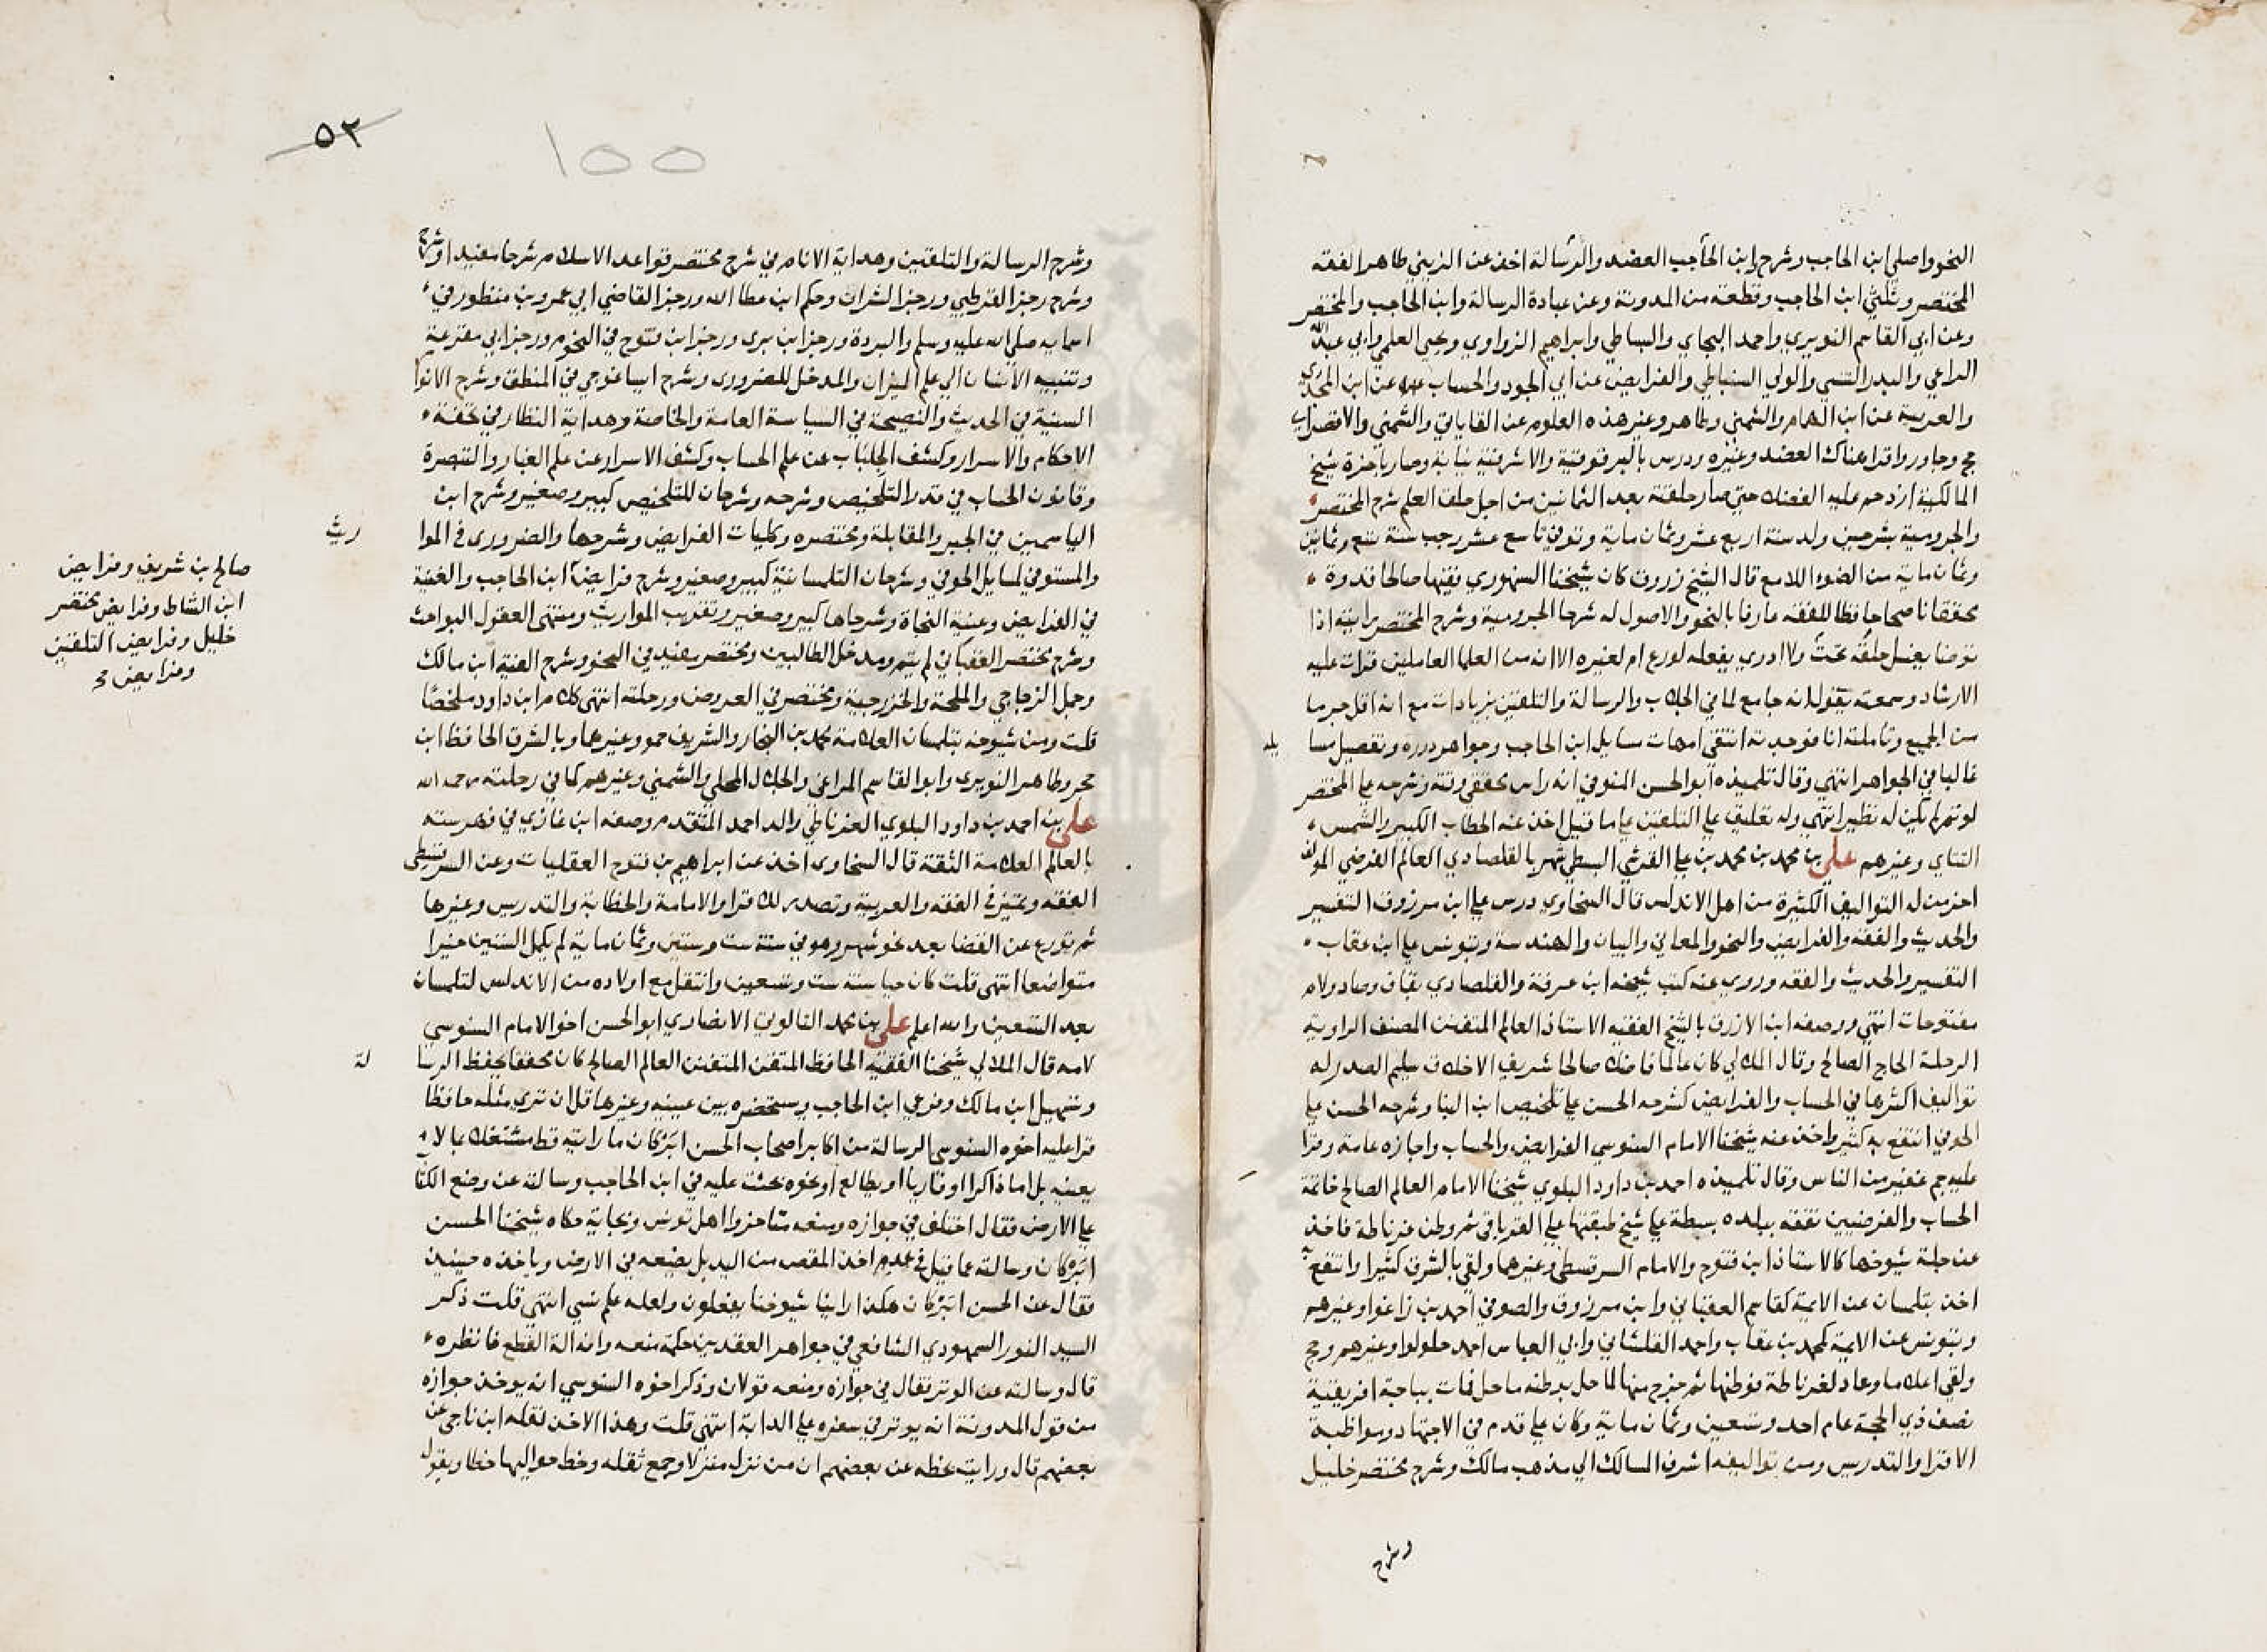 النحو واصلي ابن الحاجب وشرح ابن الحاجب العضد والرسالة اخذ عن الزيني طاهر الفقه
المختصر وثلثي ابن الحاجب وقطعة من المدونة وعن عبادة الرسالة وابن الحاجب والمختصر
وعن ابي القاسم النويري واحمد البجاي والبساطي وابراهيم الزواوي ويحيى العلمي وابي عبد الله
الراعي والبدر التنسي والولي السنباطي والفرايض عن ابي الجود والحساب عن ابن المجدي
والعربية عن ابن الهمام والشمني وطاهر وغير هذه العلوم عن القاياتي والشمني والاقصراي
حج وجاور واقرا هناك العضد وغيره ودرس بالبرقوقية والاشرفية نيابة وصار باخرة شيخ
المالكية ازدحم عليه الفضلا حتي صار حلقته بعد الثمانين من اجل حلق العلم شرح المختصر
والجرومية بشرحين ولد سنة اربع عشر وثمان ماية وتوفي تاسع عشر رجب سنة تسع وثمانين
وثمان ماية من الضوء اللامع قال الشيخ زروق كان شيخنا السنهوري فقيها صالحا قدوة
محققا ناصحا حافظا للفقه عارفا بالنحو والاصول له شرحا الجرومية وشرح المختصر رايته اذا
توضا يغسل حلقه تحت ولا ادري يفعله لورع ام لغيره الا انه من العلما العاملين قرات عليه
الارشاد وسمعته يقول انه جامع لما في الجلاب والرسالة والتلقين بزيادات مع انه اقل جرما
من الجميع وتأملته انا فوجدته انتقي امهات مسايل ابن الحاجب وجواهر درره وتفصيل مسا يله
غالبا في الجواهر انتهي وقال تلميذه ابو الحسن المنوفي انه راس محققي وقته وشرحه علي المختصر
لو تم لم يكن له نظير انتهي وله تعليق علي التلقين علي ما قيل اخذ عنه الحطاب الكبير والشمس
التتاي وغيرهم علي بن محمد بن محمد بن علي القرشي البسطي شهر بالقلصادي العالم الفرضي المولف
اخر من له التواليف الكثيرة من اهل الاندلس قال السخاوي درس علي ابن مرزوق التفسير
والحديث والفقه والفرايض والنحو والمعاني والبيان والهندسة وبتونس علي ابن عقاب
التفسير والحديث والفقه وروي عنه كتب شيخه ابن عرفة والقلصادي بقاف وصاد ولام
مفتوحات انتهي ووصفه ابن الازرق بالشيخ الفقيه الاستاذ العالم المتفنن المصنف الراوية
الرحلة الحاج الصالح وقال الملالي كان عالما فاضلا صالحا شريف الاخلاق سليم الصدر له
تواليف اكثرها في الحساب والفرايض كشرحه الحسن علي تلخيص ابن البنا وشرحه الحسن علي
الحوفي انتفع به كثير واخذ عنه شيخنا الامام السنوسي الفرايض والحساب واجازه عامة وقرا
عليه جم غفير من الناس وقال تلميذه احمد بن داود البلوي شيخنا الامام العالم الصالح خاتمة
الحساب والفرضيين تفقه ببلده بسطة علي شيخ طبقتها علي القرباقي ثم وطن غرناطة فاخذ
عن جلة شيوخها كالاستاذ ابن فتوح والامام السرقسطي وغيرهما ولقي بالشرق كثيرا وانتفع به
اخذ بتلمسان عن الايمة كقاسم العقباني وابن مرزوق والصوفي احمد بن زاغوا وغيرهم
وبتونس عن الايمة كمحمد بن عقاب واحمد القلشاني وابي العباس احمد حلولوا وغيرهم وحج
ولقي اعلاما وعاد لغرناطة فوطنها ثم خرج منها لما حل بوطنه ما حل فمات بباجة افريقية
نصف ذي الحجة عام احد وتسعين وثمان ماية وكان علي قدم في الاجتهاد ومواظبة
الاقرا والتدريس ومن تواليفه اشرف المسالك الي مذهب مالك وشرح مختصر خليل
وشرح
٥٣
١٥٥
وشرح الرسالة والتلقين وهداية الانام في شرح مختصر قواعد الاسلام شرحا مفيدا وشرح
وشرح رجز القرطبي ورجز الشران وحكم ابن عطا الله ورجز القاضي ابي عمرو بن منظور في
اسمايه صلي الله عليه وسلم والبردة ورجز ابن بري ورجز ابن فتوح في النجوم ورجز ابي مقرعة
وتنبيه الانسان الي علم الميزان والمدخل للضروري وشرح ايساغوجي في المنطق وشرح الانوا
السنية في الحديث والنصيحة في السياسة العامة والخاصة وهداية النظار في تحفة
الاحكام والاسرار وكشف الجلباب عن علم الحساب وكشف الاسرار عن علم الغبار والتبصرة
وقانون الحساب في قدر التلخيص وشرحه وشرحان للتلخيص كبير وصغير وشرح ابن
الياسمين في الجبر والمقابلة ومختصره وكليات الفرايض وشرحها والضروري في الموا ريث
والمستوفي لمسايل الحوفي وشرحان التلمسانية كبير وصغير وشرح فرايض ابن الحاجب والغنية
صالح بن شريف وفرايض
ابن الشاط وفرايض مختصر
خليل وفرايض التلقين
وفرايض
في الفرايض وغنية النحاة وشرحاها كبير وصغير وتقريب المواريث ومنتهي العقول البواحث
وشرح مختصر العقباني لم يتم ومدخل الطالبين ومختصر مفيد في النحو وشرح الفية ابن مالك
وجمل الزجاجي والملحة والخزرجية ومختصر في العروض ورحلته انتهي كلام ابن داود ملخصا
قلت ومن شيوخه بتلمسان العلامة محمد بن النجار والشريف حمو وغيرهما وبالشرق الحافظ ابن
حجر وطاهر النويري وابو القاسم المراغي والجلال المحلي والشمني وغيرهم كما في رحلته رحمه الله
علي بن احمد بن داود البلوي الغرناطي والد احمد المتقدم وصفه ابن غازي في فهرسته
بالعالم العلامة الثقة قال السخاوي اخذ عن ابراهيم بن فتوح العقليات وعن السرقسطي
الفقه وتميز في الفقه والعربية وتصدر للاقرا والامامة والخطابة والتدريس وغيرها
ثم تورع عن القضا بعد نحو شهر وهو في سنة ست وستين وثمان ماية لم يكمل الستين خيرا
متواضعا انتهي قلت كان حيا سنة ست وتسعين وانتقل مع اولاده من الاندلس لتلمسان
بعد التسعين والله اعلم علي بن محمد التالوتي الانصاري ابو الحسن اخو الامام السنوسي
لامه قال الملالي شيخنا الفقيه الحافظ المتقن المتفنن العالم الصالح كان محققا يحفظ الرسا لة
وتسهيل ابن مالك وفرعي ابن الحاجب ويستحضره بين عينيه وغيرها قل ان تري مثله حافظا
قرا عليه اخوه السنوسي الرسالة من اكابر اصحاب الحسن ابركان ما رايته قط مشتغلا بما لا
يعنيه بل اما ذاكرا او قاريا او يطالع او نحوه بحثت عليه في ابن الحاجب وسالته عن وضع الكتا
علي الارض فقال اختلف في جوازه ومنعه متاخروا اهل تونس وبجاية حكاه شيخنا الحسن
ابركان وسالته عما قيل في عدم اخذ المقص من اليد بل يضعه في الارض وياخذه حينيذ
فقال عن الحسن ابركان هكذا راينا شيوخنا يفعلون ولعله علم نسي انتهي قلت ذكر
السيد النور السمهودي الشافعي في جواهر العقدين حكمة منعه وانه الة القطع فانظره
قال وسالته عن الوتر فقال في جوازه ومنعه قولان وذكر اخوه السنوسي انه يوخذ جوازه
من قول المدونة انه يوتر في سفره علي الدابة انتهي قلت وهذا الاخذ نقله ابن ناجي عن
بعضهم قال ورايت بخطه عن بعضهم ان من نزل منزلا وجمع ثقله وخط حواليها خطا ويقول